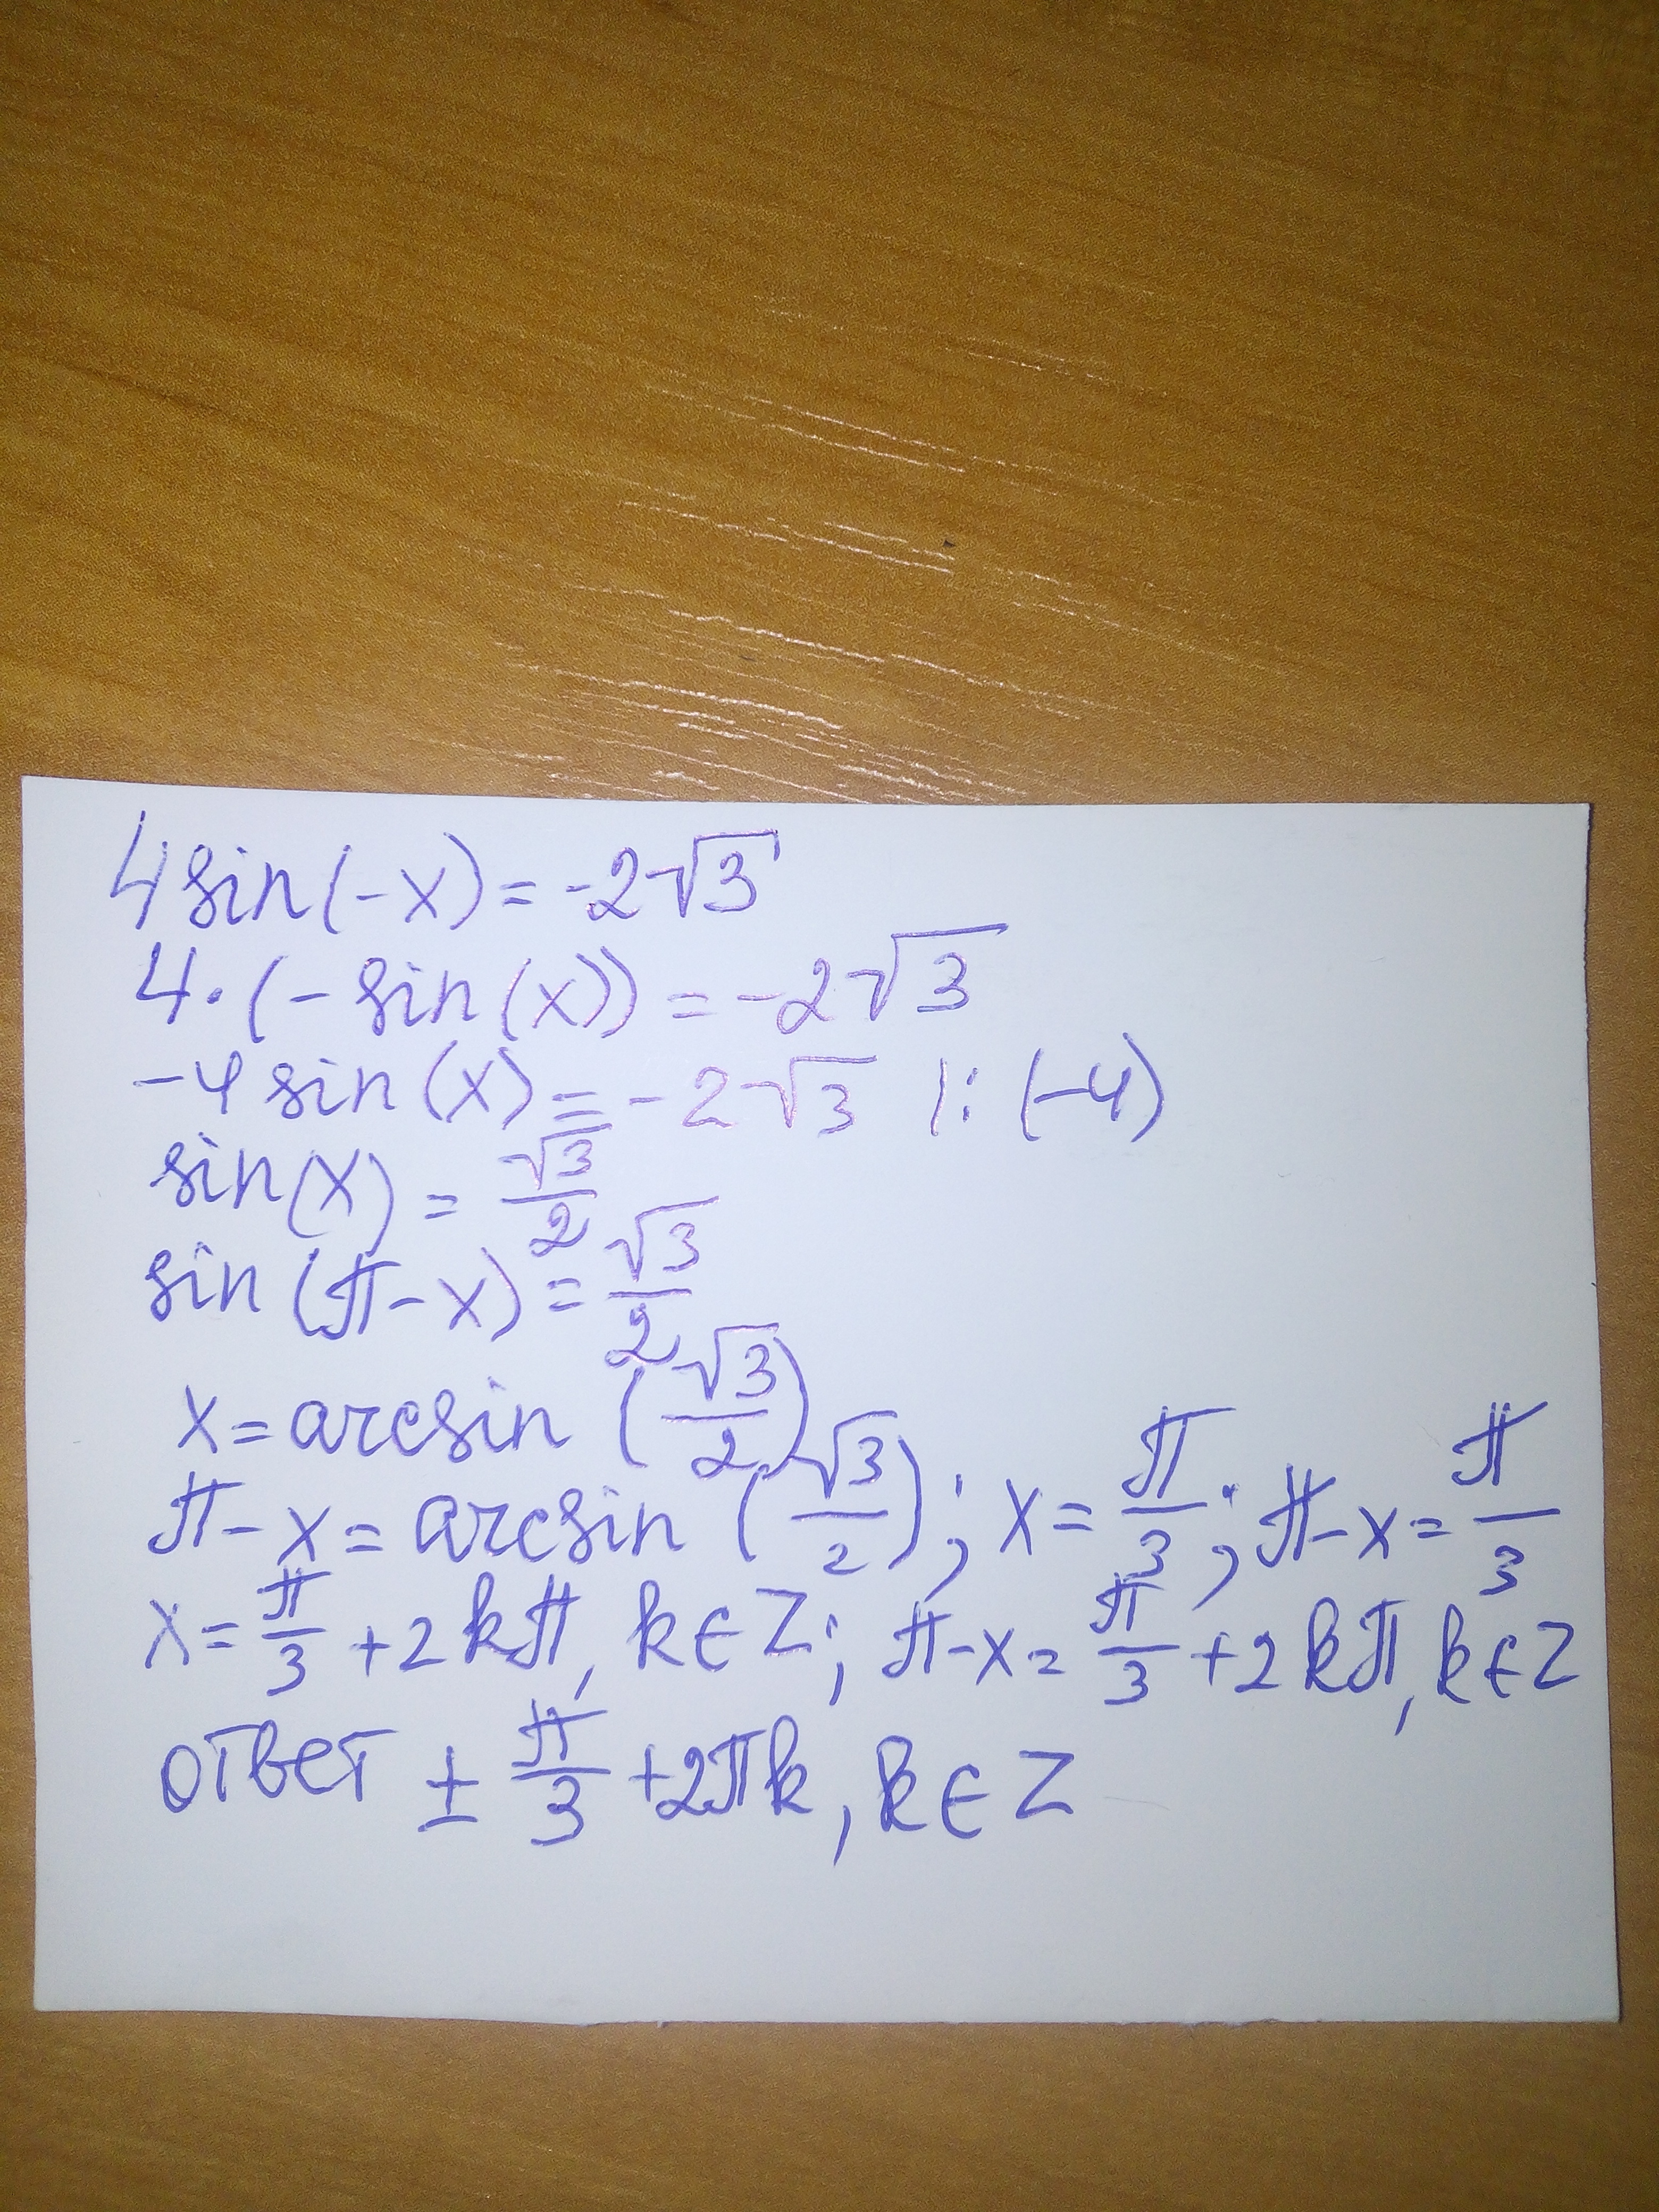 4sin(-x)=-2√3
4·(-sin(x))=-2√3
-4sin(x)=-2√3 |:(-4)
sin(x)=√3/2
sin(π-x)=√3/2
x=arcsin(√3/2)
π-x=arcsin(√3/2); x=π/3; π-x=π/3
x=π/3+2kπ, k∈Z; π-x=π/3+2kπ, k∈Z
ответ ±π/3+2πk, k∈Z